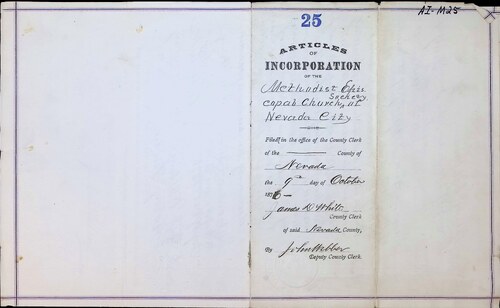 25
AI-M25
ARTICLES
OF
INCORPORATION
OF THE
Methodist Epis
Society
copal Church, at
Nevada City
Filed in the office of the County Clerk
of the County of
Nevada
the 9th day of October
18
James D. White
County Clerk
of said Nevada County,
By John Webber
Deputy County Clerk.